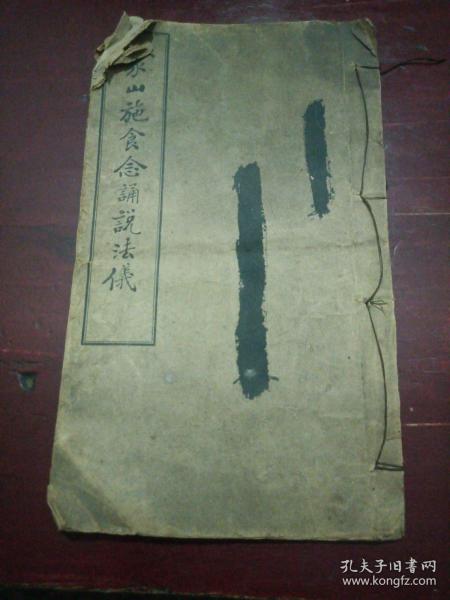 家山施食念誦說法儀
孔夫子旧书网
www.kongfz.com